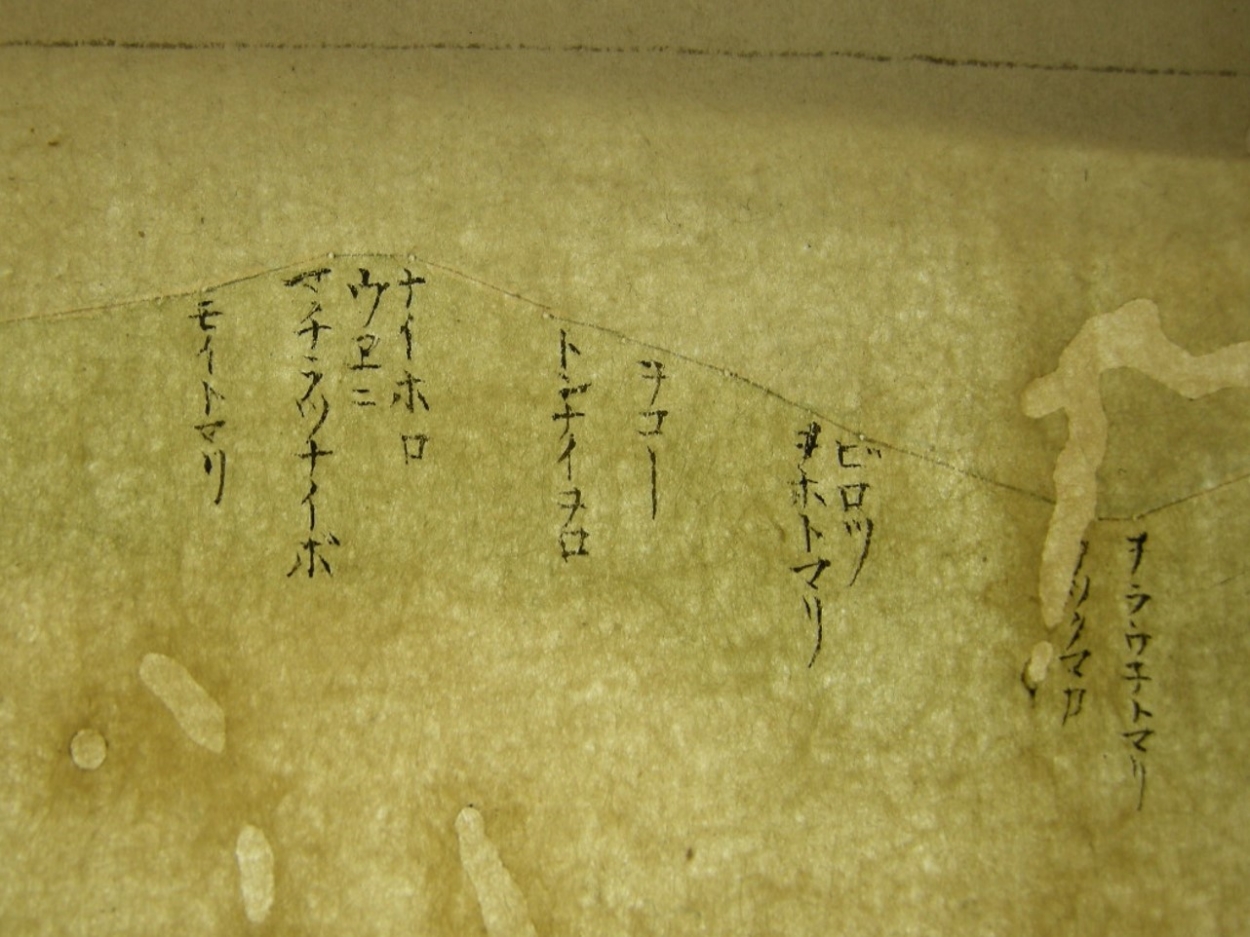 ヲラウチトマリ
ビロツ
ヲホトマリ
ヲコー
トンナイヲロ
ナイホロ
ウヱニ
マチラツナイボ
モイトマリ